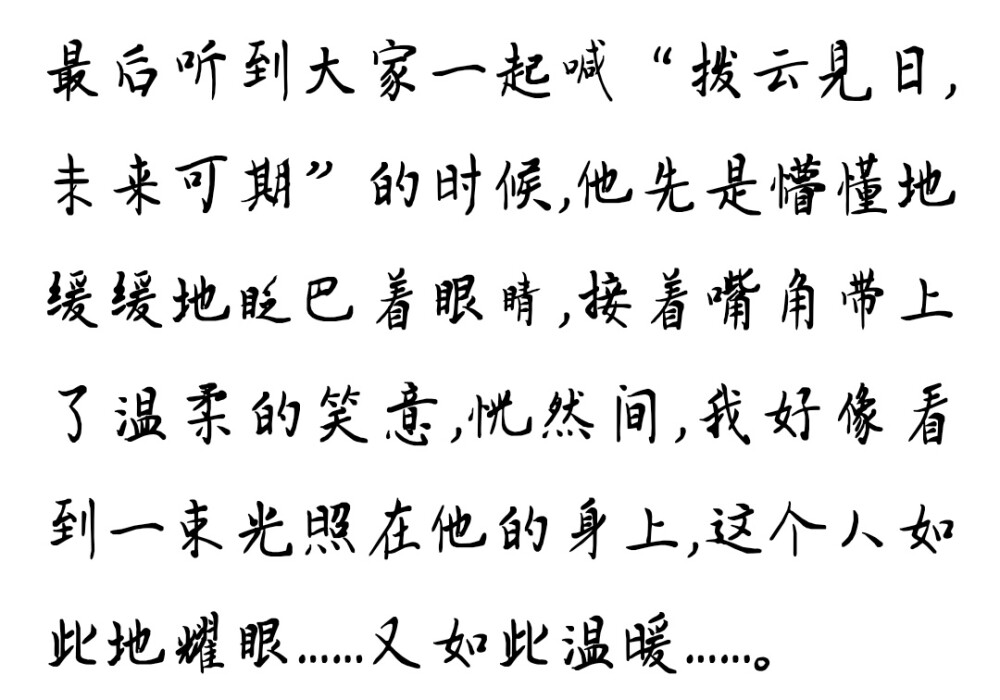 最后听到大家一起喊“拨云见日,
未来可期”的时候,他先是懵懂地
缓缓地眨巴着眼睛,接着嘴角带上
了温柔的笑意,恍然间,我好像看
到一束光照在他的身上,这个人如
此地耀眼……又如此温暖……。